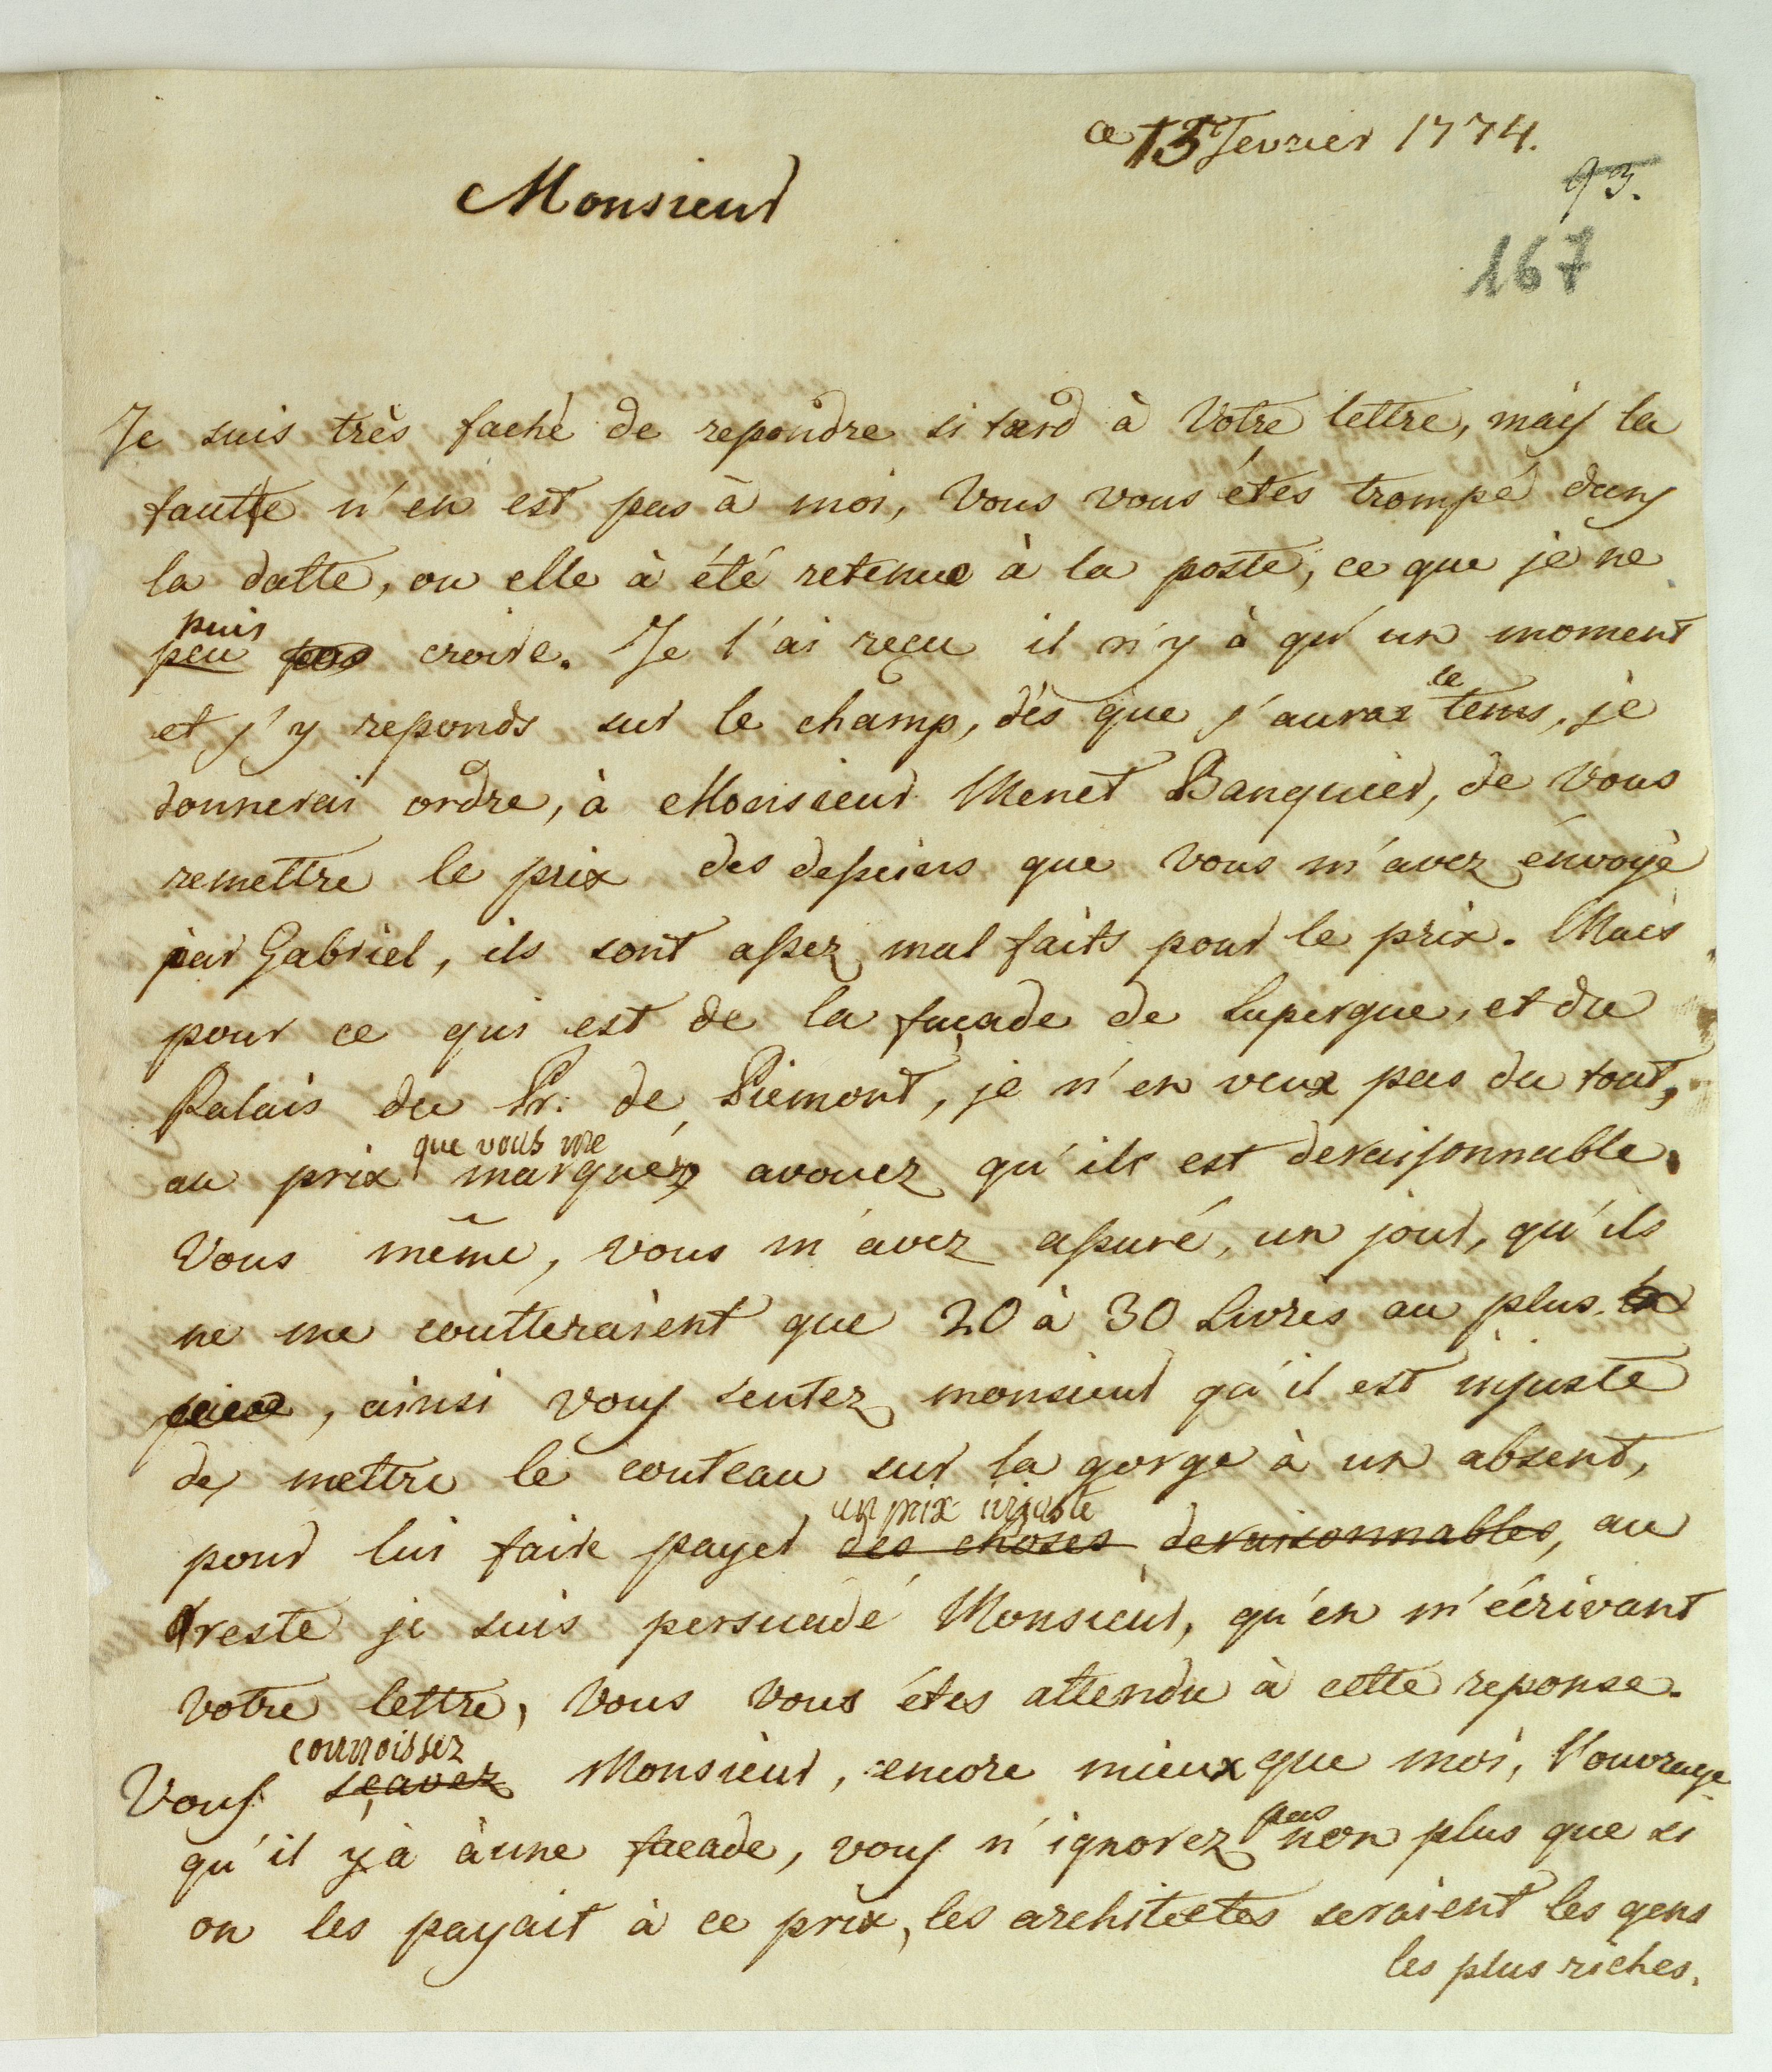 ce 13 Fevrier 1774.
93.
Monsieur
167
Je suis très faché de repondre si tard à Votre lettre, mais la
fautte n'en est pas à moi, Vous vous étes trompé dans
la datte, ou elle à été retenue à la poste, ce que je ne
puis
peu pas croire. Je l'ai reçu il n'y à qu'un moment
le
et j'y reponds sur le champ, dès que j'aurai tems, je
donnerai ordre, à Monsieur Menet Banquier, de Vous
remettre le prix des desseins que Vous m'avez énvoyé
par Gabriel, ils sont assez mal faits pour le prix. Mais
pour ce qui est de la façade de Supergue, et du
Palais du Pr: de Piemont, je n'en veux pas du tout,
que vous me
au prix marquéz avouez qu'ils est deraisonnable.
Vous même, vous m'avez assuré, un jour, qu'ils
ne me coutteraient que 20 à 30 Livres au plus la
piece, ainsi vous sentez monsieur qu'il est injuste
de mettre le couteau sur la gorge à un absent,
un prix injuste
pour lui faire payer des choses deraisonnables, au
reste je suis persuadé Monsieur, qu'en m'écrivant
Votre lettre, Vous Vous étes attendu à cette reponse.
connoissez
Vous sçavez Monsieur, encore mieux que moi, l'ouvrage
pas
qu'il y à à une facade, vous n'ignorez non plus que si
on les payait à ce prix, les architectes seraient les gens
les plus riches.